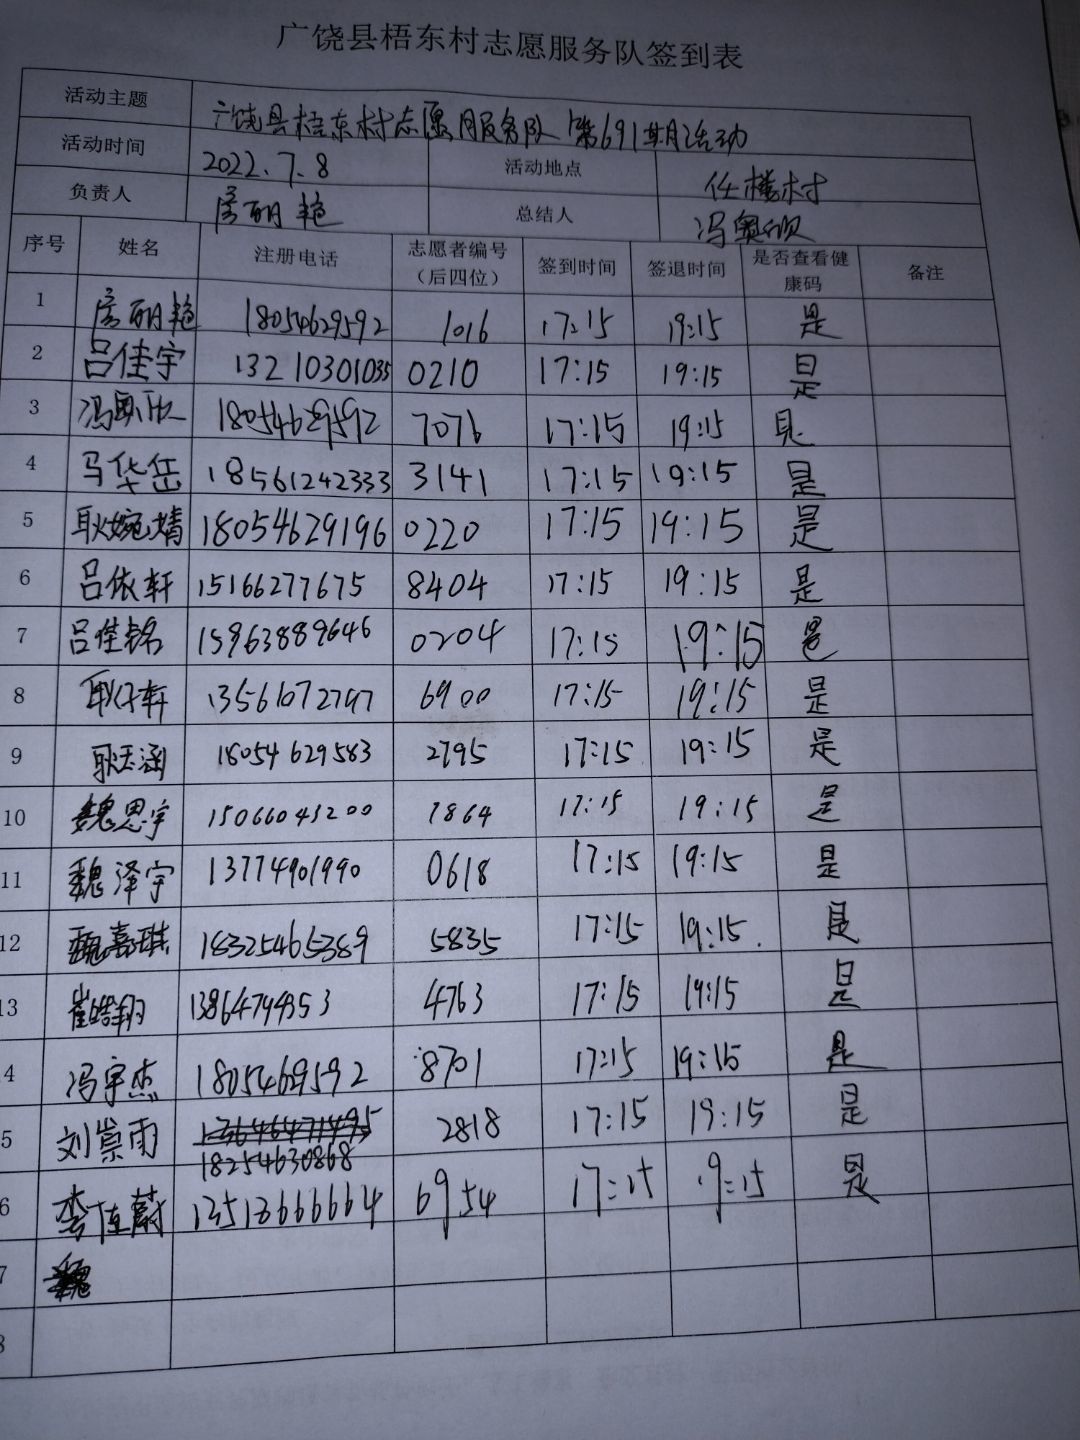 广饶县梧东村志愿服务队签到表
活动主题 广饶县梧东村志愿服务队第691期活动
活动时间 2022.7.8 活动地点 任楼村
负责人 房丽艳 总结人 冯奥欣
序号 姓名 注册电话 志愿者编号（后四位） 签到时间 签退时间 是否查看健康码 备注
1 房丽艳 18054629592 1016 17:15 19:15 是
2 吕佳宇 13210301035 0210 17:15 19:15 是
3 冯奥欣 18054629592 7076 17:15 19:15 是
4 马华岳 18561242333 3141 17:15 19:15 是
5 耿婉婧 18054629196 0220 17:15 19:15 是
6 吕依轩 15166277675 8404 17:15 19:15 是
7 吕佳铭 15963889646 0204 17:15 19:15 是
8 耿仔轩 13561072797 6900 17:15 19:15 是
9 耿玉涵 18054629583 2795 17:15 19:15 是
10 魏思宇 15066045200 7864 17:15 19:15 是
11 魏泽宇 13774901990 0618 17:15 19:15 是
12 魏嘉琪 18325465389 5835 17:15 19:15. 是
13 崔皓翔 13864794353 4763 17:15 19:15 是
4 冯宇杰 1805469592 8701 17:15 19:15 是
5 刘崇雨 18254630868 2818 17:15 19:15 是
6 李佳蔚 13518666664 6954 17:15 19:15 是
7 魏
8